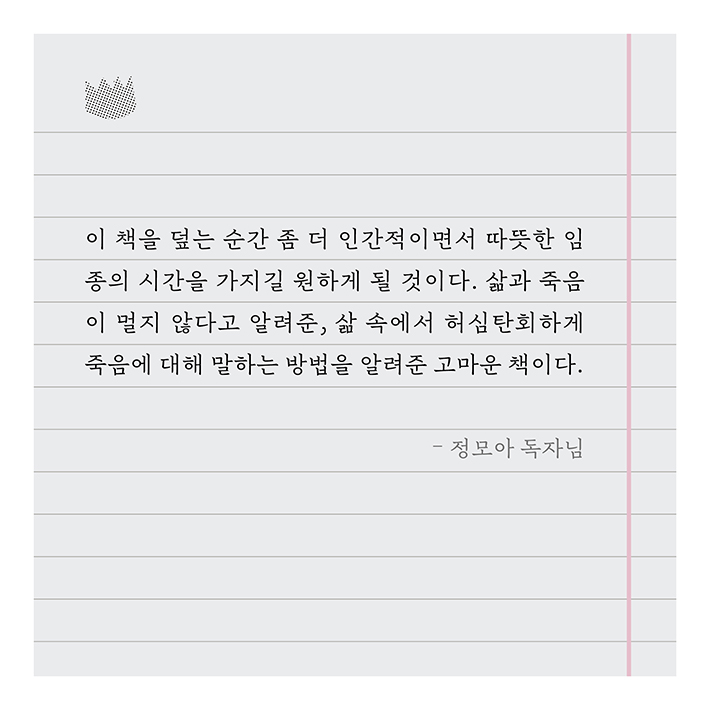 이 책을 덮는 순간 좀 더 인간적이면서 따뜻한 임
종의 시간을 가지길 원하게 될 것이다. 삶과 죽음
이 멀지 않다고 알려준, 삶 속에서 허심탄회하게
죽음에 대해 말하는 방법을 알려준 고마운 책이다.
- 정모아 독자님